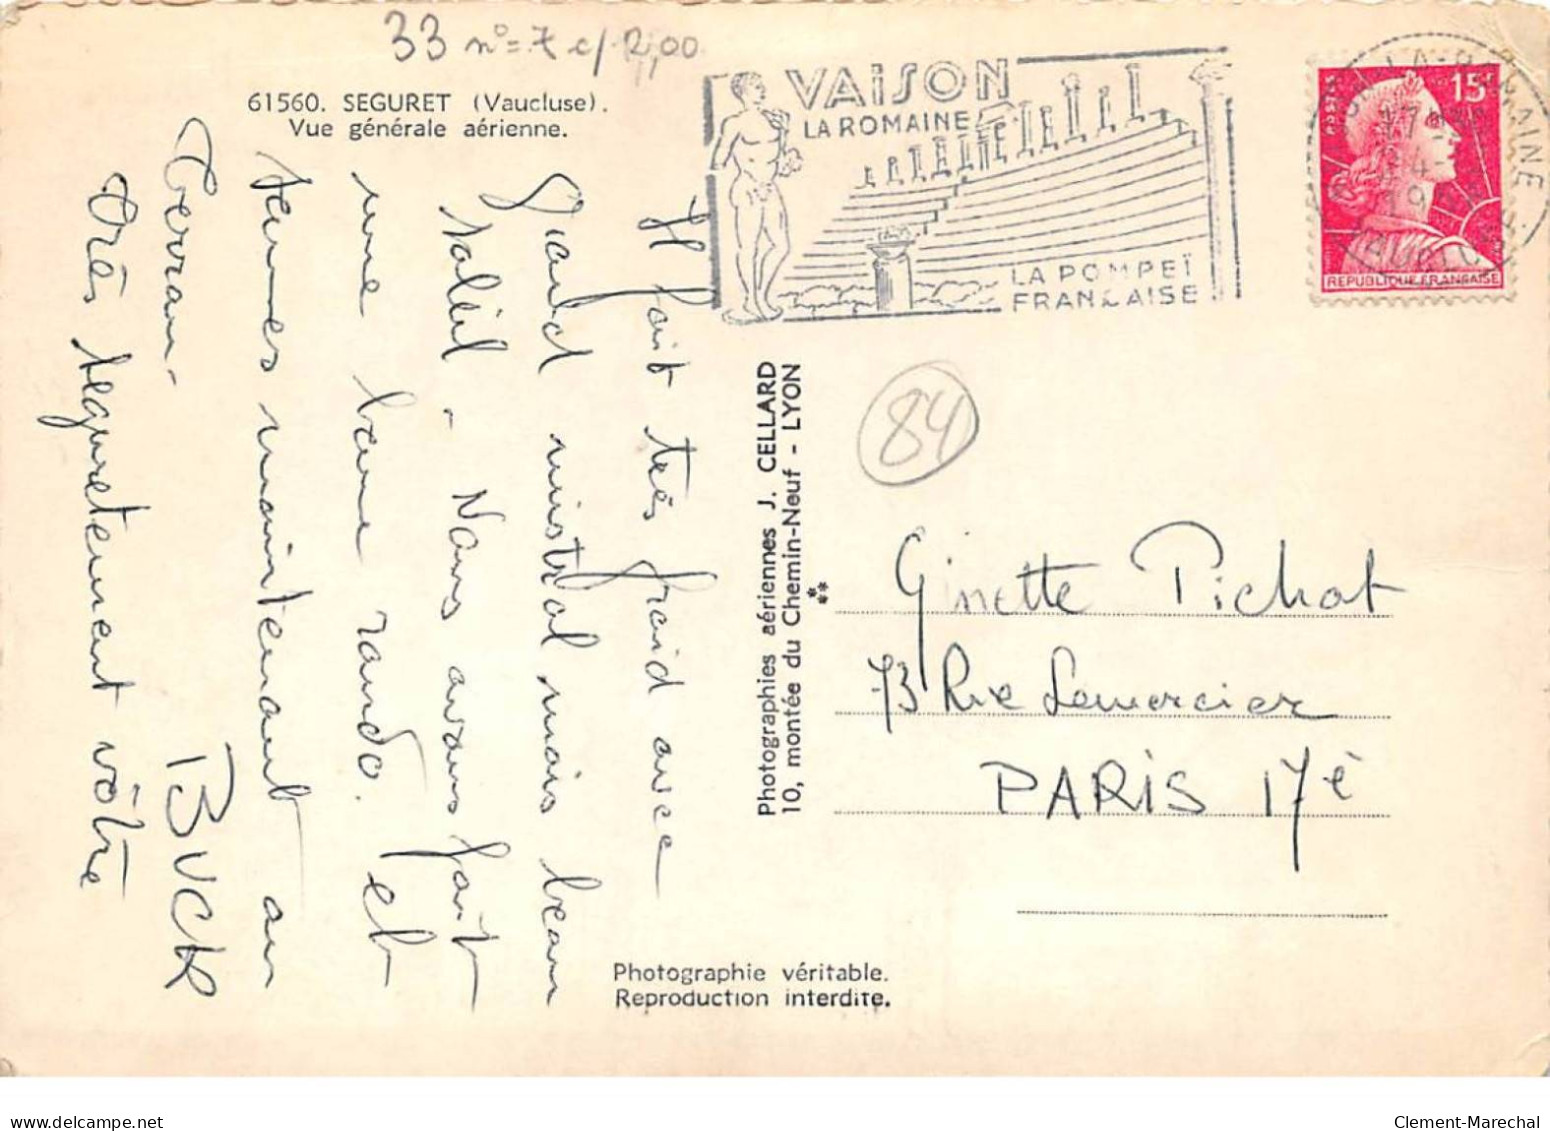 33 n°=7 c/ 2,00
61560. SEGURET (Vaucluse).
Vue générale aérienne.
VAISON
LA ROMAINE
LA POMPEÏ
FRANÇAISE
POSTES
15F
REPUBLIQUE FRANÇAISE
LA-ROMAINE
17
4-
19
VAUCLUSE
Il fait très froid avec
grand mistral mais beau
soleil - Nous avons fait
une bonne rando. et
sommes maintenant au
terrain.
Très seguretement vôtre
BUCK
Photographies aériennes J. CELLARD
10, montée du Chemin-Neuf - LYON
84
Ginette Pichot
73 Rue Lemercier
PARIS 17è
Photographie véritable.
Reproduction interdite.
delcampe.net
Clement-Marechal